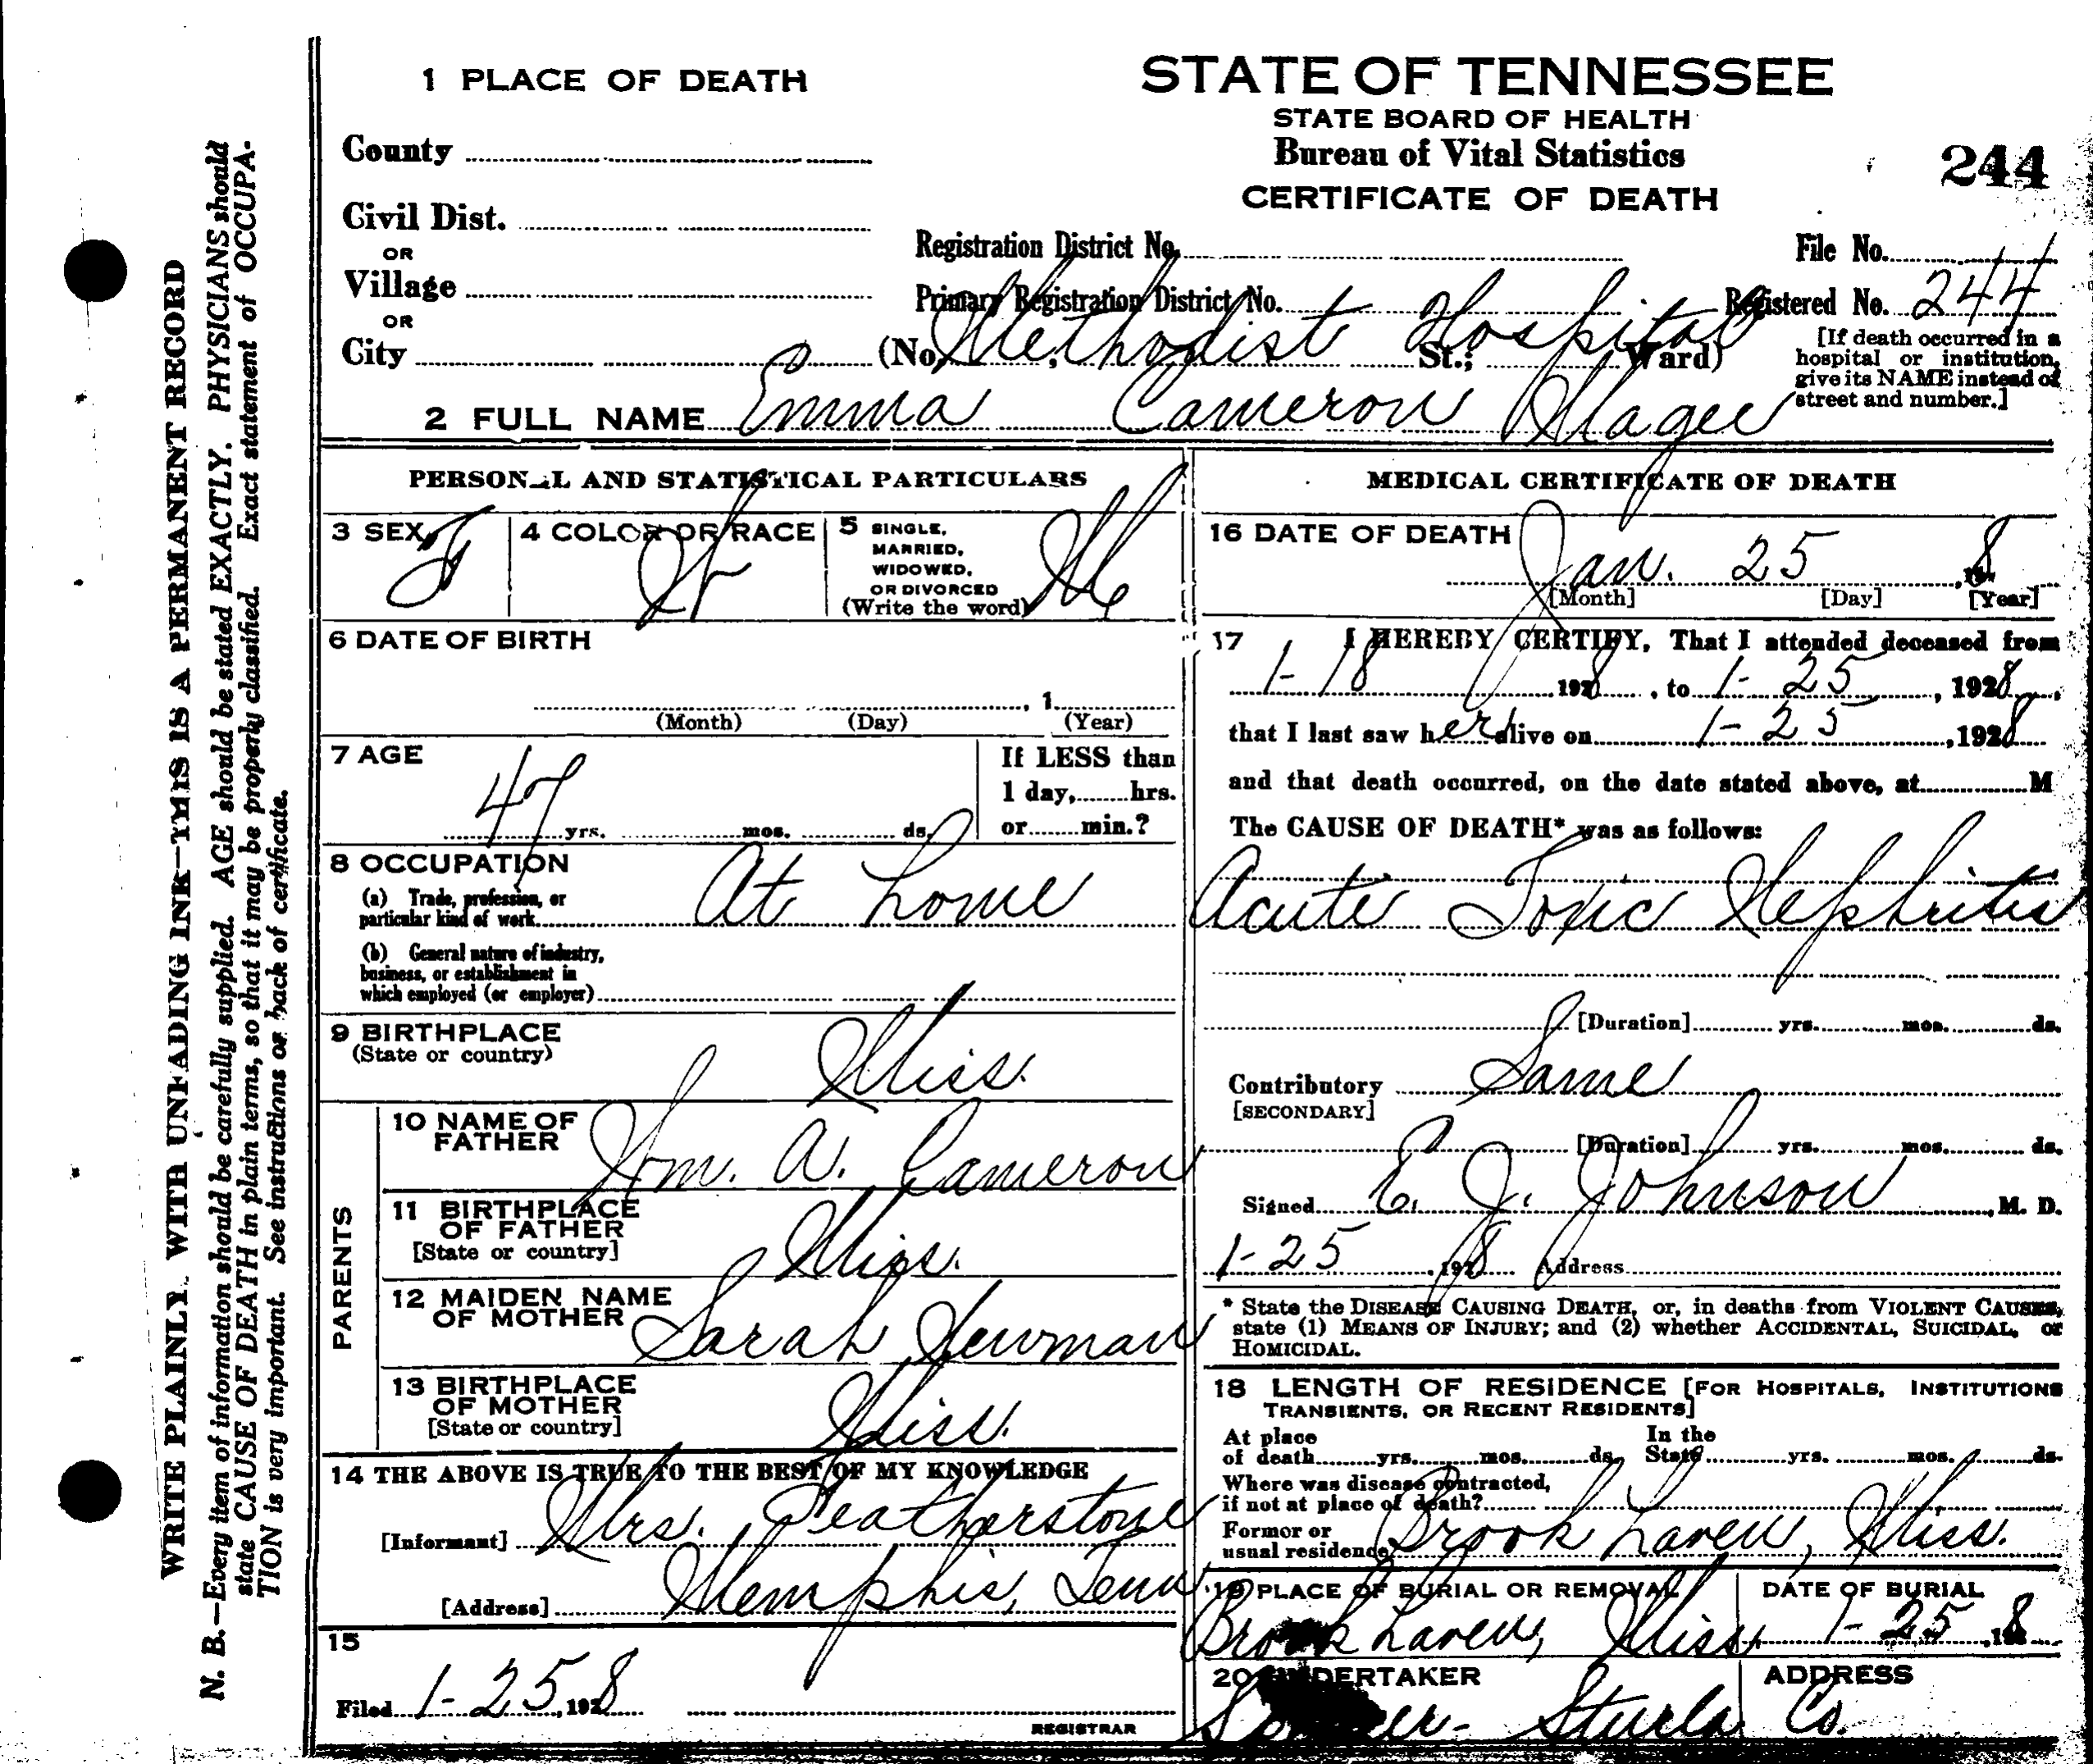 WRITE PLAINLY, WITH UNFADING INK—THIS IS A PERMANENT RECORD
N. B.—Every item of information should be carefully supplied. AGE should be stated EXACTLY. PHYSICIANS should
state CAUSE OF DEATH in plain terms, so that it may be properly classified. Exact statement of OCCUPA-
TION is very important. See instructions on back of certificate.
1 PLACE OF DEATH
County
Civil Dist.
OR
Village
OR
City
STATE OF TENNESSEE
STATE BOARD OF HEALTH
Bureau of Vital Statistics
CERTIFICATE OF DEATH
244
Registration District No.
File No.
Primary Registration District No.
Registered No. 244
(No. Methodist Hospital St.; Ward)
[If death occurred in a
hospital or institution,
give its NAME instead of
street and number.]
2 FULL NAME Emma Cameron Magee
PERSONAL AND STATISTICAL PARTICULARS
3 SEX F
4 COLOR OR RACE W
5 SINGLE,
MARRIED,
WIDOWED,
OR DIVORCED
(Write the word) M
6 DATE OF BIRTH
, 1
(Month) (Day) (Year)
7 AGE
47 yrs. mos. ds.
If LESS than
1 day, hrs.
or min.?
8 OCCUPATION
(a) Trade, profession, or
particular kind of work At home
(b) General nature of industry,
business, or establishment in
which employed (or employer)
9 BIRTHPLACE
(State or country) Miss.
PARENTS
10 NAME OF
FATHER Wm. A. Cameron
11 BIRTHPLACE
OF FATHER
[State or country] Miss.
12 MAIDEN NAME
OF MOTHER Sarah Newman
13 BIRTHPLACE
OF MOTHER
[State or country] Miss.
14 THE ABOVE IS TRUE TO THE BEST OF MY KNOWLEDGE
[Informant] Mrs. Featherstone
[Address] Memphis, Tenn
15
Filed 1-25, 1928
REGISTRAR
MEDICAL CERTIFICATE OF DEATH
16 DATE OF DEATH
Jan. 25 , 8
[Month] [Day] [Year]
17 I HEREBY CERTIFY, That I attended deceased from
1-18 1928, to 1-25, 1928,
that I last saw her alive on 1-25, 1928
and that death occurred, on the date stated above, at M
The CAUSE OF DEATH* was as follows:
Acute Toxic Nephritis
[Duration] yrs. mos. ds.
Contributory Same
[SECONDARY]
[Duration] yrs. mos. ds.
Signed E. J. Johnson, M. D.
1-25, 1928 Address
* State the DISEASE CAUSING DEATH, or, in deaths from VIOLENT CAUSES,
state (1) MEANS OF INJURY; and (2) whether ACCIDENTAL, SUICIDAL, or
HOMICIDAL.
18 LENGTH OF RESIDENCE [FOR HOSPITALS, INSTITUTIONS
TRANSIENTS, OR RECENT RESIDENTS]
At place
of death yrs. mos. ds.
In the
State yrs. mos. ds.
Where was disease contracted,
if not at place of death?
Former or
usual residence Brook Haven, Miss.
19 PLACE OF BURIAL OR REMOVAL
Brook Haven, Miss
DATE OF BURIAL
1-25, 8
20 UNDERTAKER
Sturla Co.
ADDRESS